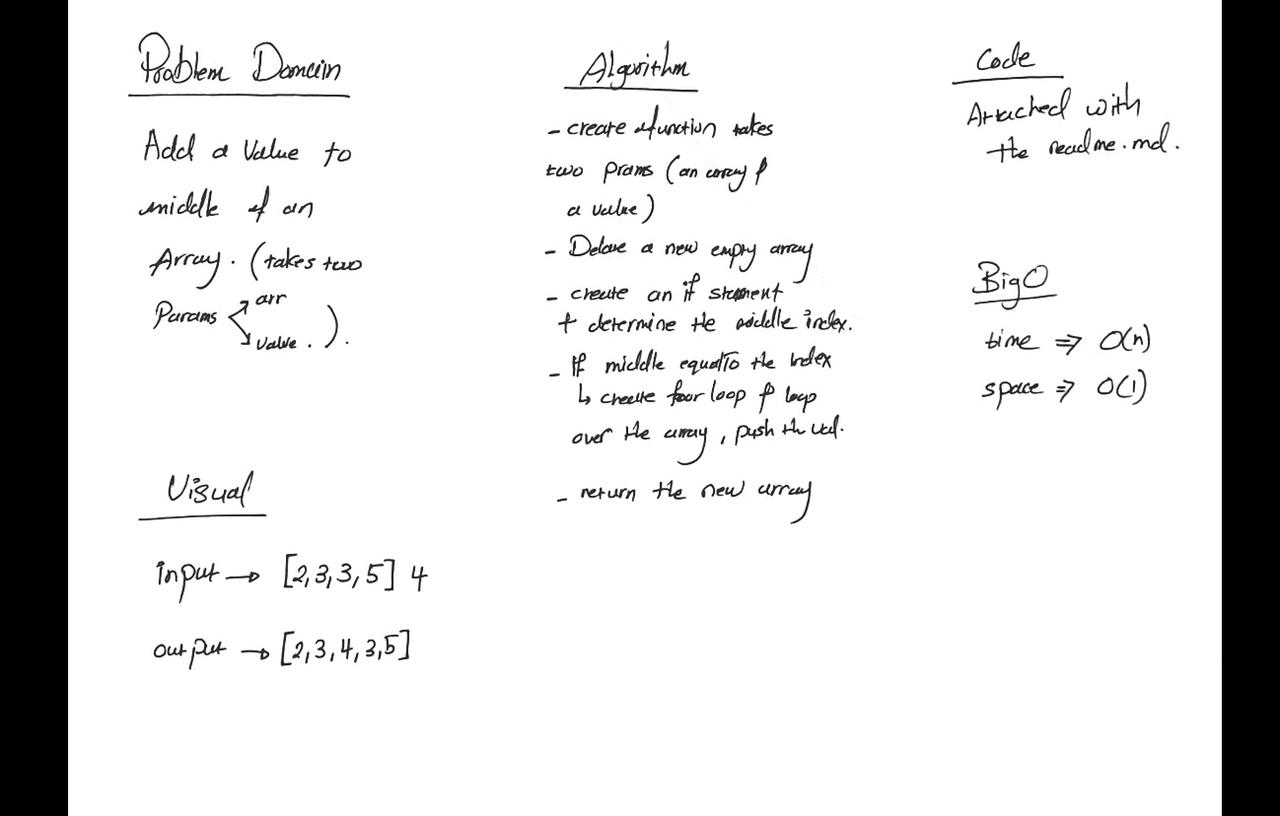 Problem Domain
Add a Value to
middle of an
Array. (takes two
Params arr
value. ).
Visual
input → [2,3,3,5] 4
output → [2,3,4,3,5]
Algorithm
- create a function takes
two prams (an array &
a value)
- Delare a new empty array
- create an if stament
+ determine the middle index.
- If middle equal To the Index
↳ create four loop & loop
over the array, push the val.
- return the new array
Code
Attached with
the readme.md.
Big O
time ⇒ O(n)
space ⇒ O(1)